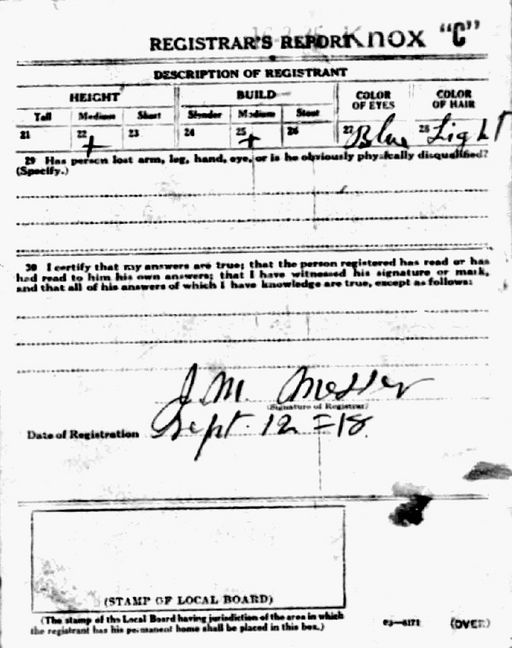 REGISTRAR'S REPORT Knox "C"
DESCRIPTION OF REGISTRANT
HEIGHT BUILD COLOR OF EYES COLOR OF HAIR
Tall Medium Short Slender Medium Stout
21 22 + 23 24 25 + 26 27 Blue 28 Light
29 Has person lost arm, leg, hand, eye, or is he obviously physically disqualified?
(Specify.)
30 I certify that my answers are true; that the person registered has read or has
had read to him his own answers; that I have witnessed his signature or mark,
and that all of his answers of which I have knowledge are true, except as follows:
J. M. Messer
(Signature of Registrar)
Date of Registration Sept. 12 = 18.
(STAMP OF LOCAL BOARD)
(The stamp of the Local Board having jurisdiction of the area in which
the registrant has his permanent home shall be placed in this box.)
03—6171 (OVER)